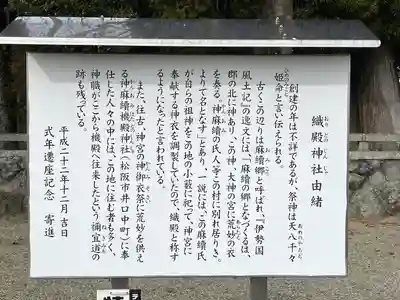 織殿神社由緒
おりどのじんじゃ
創建の年は不詳であるが、祭神は天八千々
姫命と言い伝えられる。
古くこの辺りは麻績郷と呼ばれ、『伊勢国
風土記』の逸文には、「麻績の郷となづくるは、
郡の北に神あり、この神、大神の宮に荒妙の衣
を奏る。神麻績の氏人等この村に別れ居りき。
よりて名となす」とあり、一説には、この麻績氏
が自らの祖神をこの地の小藪に祀って、神宮に
奉献する神衣を調製していたので、織殿と称す
るようになったと言われている。
また、往古、神宮の神御衣祭に荒妙を供え
る神麻績機殿神社(松阪市井口中町)に奉
仕した人々の中には、この地に住む者も多く、
神職がここから機殿へ往来したという禰宜道の
跡も残っている。
平成二十二年十二月吉日
式年遷座記念 寄進